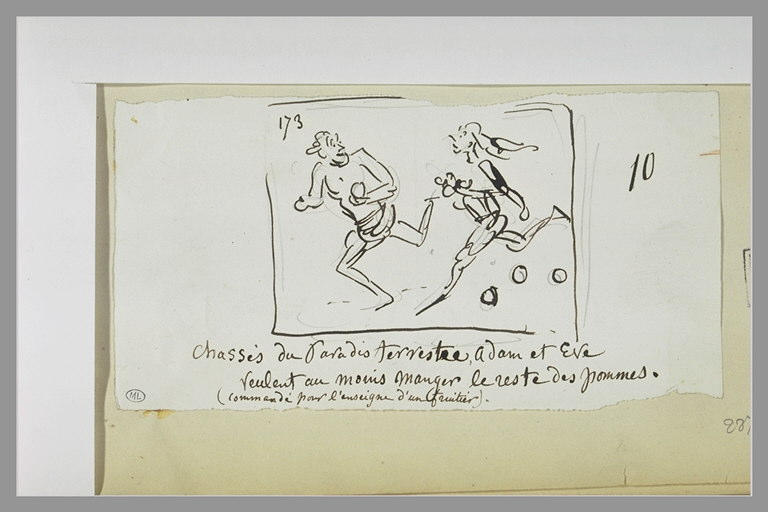 173
10
Chassés du Paradis terrestre, Adam et Eve
veulent au moins manger le reste des pommes.
(commandé pour l'enseigne d'un fruitier).
ML